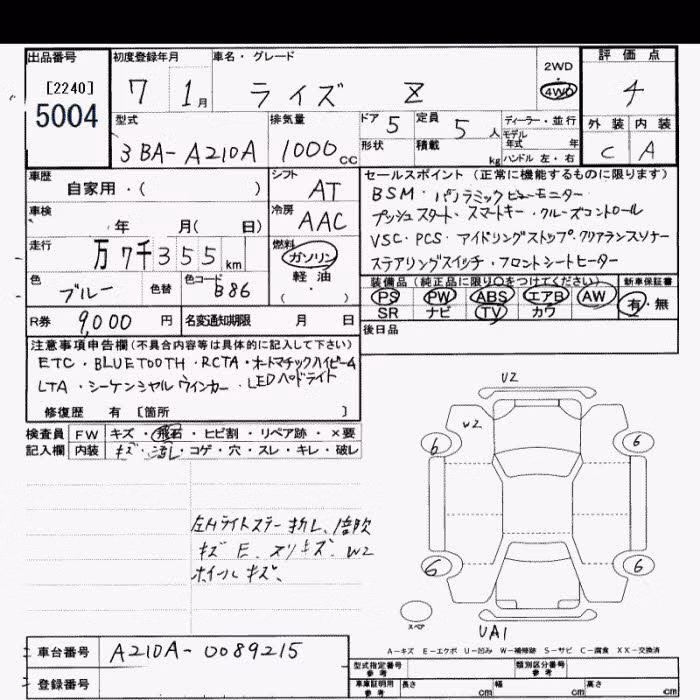 出品番号 [2240] 5004
初度登録年月 7 1月
車名・グレード ライズ Z
2WD・4WD
評価点 4
外装 内装
C A
型式 3BA-A210A
排気量 1000cc
ドア 5 定員 5人
形状 積載 kg
ディーラー・並行
モデル年式 年
ハンドル 左・右
車歴 自家用・( )
シフト AT
車検 年 月( 日)
冷房 AAC
走行 万7千355km
燃料 ガソリン 軽油 ( ・ )
色 ブルー 色替 色コード B86
R券 9,000円 名変通知期限 月 日
セールスポイント(正常に機能するものに限ります)
BSM・パノラミックビューモニター
プッシュスタート・スマートキー・クルーズコントロール
VSC・PCS・アイドリングストップ・クリアランスソナー
ステアリングスイッチ・フロントシートヒーター
装備品(純正品に限り○をつけてください) 新車保証書
PS PW ABS エアB AW 有・無
SR ナビ TV カワ
後日品
注意事項申告欄(不具合内容等は具体的に記入して下さい)
ETC・BLUETOOTH・RCTA・オートマチックハイビーム
LTA・シーケンシャルウインカー・LEDヘッドライト
修復歴 有 [箇所 ]
検査員 FW キズ・飛石・ヒビ割・リペア跡・×要
記入欄 内装 キズ・汚れ・コゲ・穴・スレ・キレ・破れ
左Hライトステー折れ、
キズ E、スリキズ、W2
ホイールキズ、
U2
W2
6 6
6 6
スペア
UA1
A-キズ E-エクボ U-凹み W-補修跡 S-サビ C-腐食 XX-交換済
車台番号 A210A-0089215
登録番号
型式指定番号 参考 類別区分番号 参考
車庫証明用 参考 長さ cm 幅 cm 高さ cm